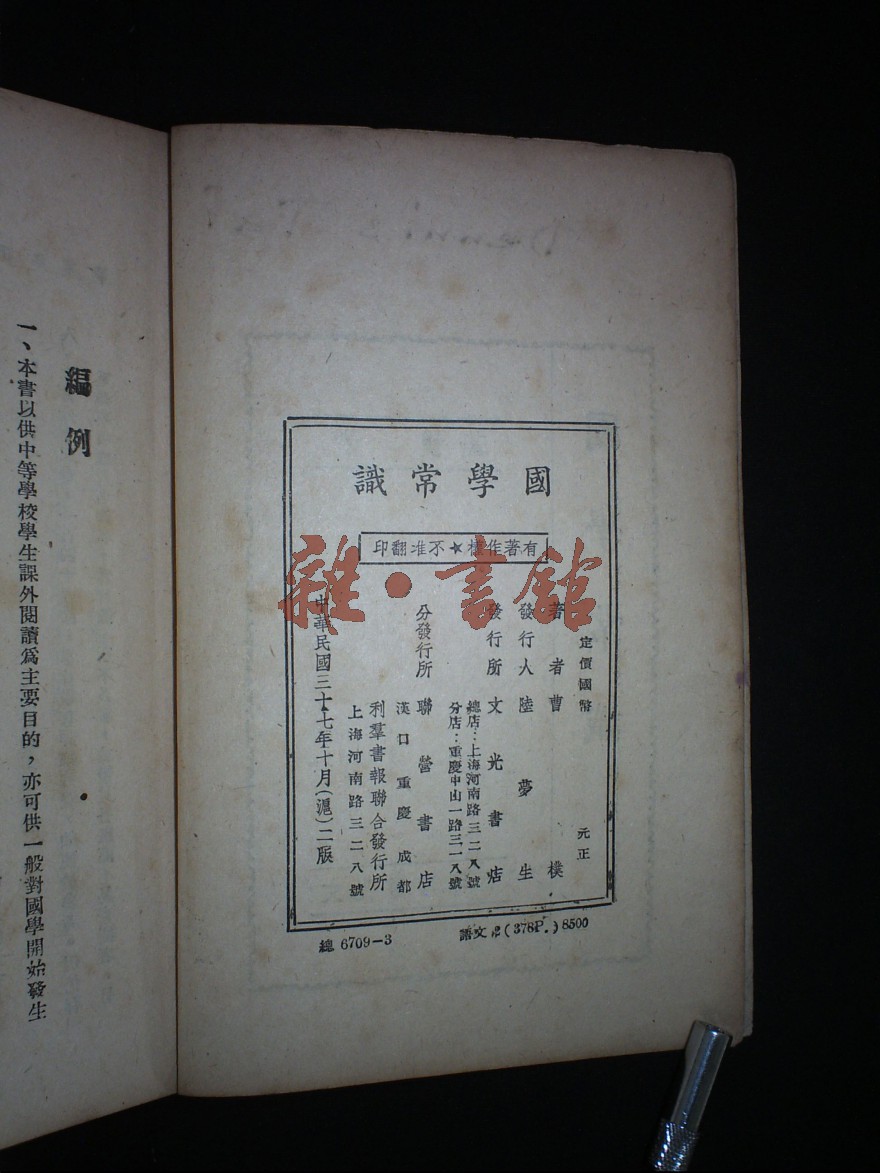 國學常識
有著作權★不准翻印
定價國幣 元正
著者曹樸
發行人陸夢生
發行所文光書店
總店：上海河南路三二八號
分店：重慶中山一路三一八號
分發行所聯營書店
漢口重慶成都
利羣書報聯合發行所
上海河南路三二八號
中華民國三十七年十月(滬)二版
總 6709-3
語文 (378P.) 8500
編例
一、本書以供中等學校學生課外閱讀爲主要目的，亦可供一般對國學開始發生
雜·書館